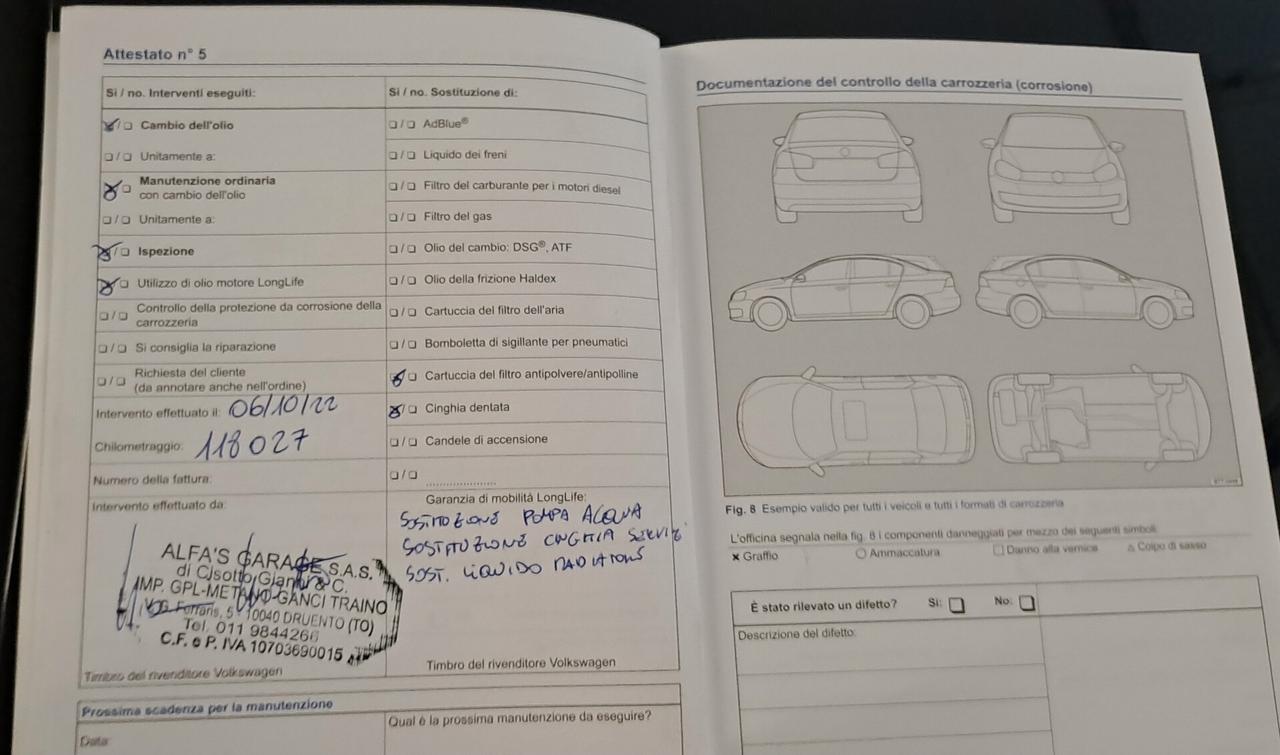 Attestato n° 5
Si / no. Interventi eseguiti:
❏ / ❏ Cambio dell'olio
❏ / ❏ Unitamente a:
❏ / ❏ Manutenzione ordinaria
con cambio dell'olio
❏ / ❏ Unitamente a:
❏ / ❏ Ispezione
❏ / ❏ Utilizzo di olio motore LongLife
❏ / ❏ Controllo della protezione da corrosione della
carrozzeria
❏ / ❏ Si consiglia la riparazione
❏ / ❏ Richiesta del cliente
(da annotare anche nell'ordine)
Intervento effettuato il: 06/10/22
Chilometraggio: 118027
Numero della fattura:
Intervento effettuato da:
ALFA'S GARAGE S.A.S.
di Cisotto Gianni & C.
IMP. GPL-METANO-GANCI TRAINO
Ferraris, 5 - 10040 DRUENTO (TO)
Tel. 011 9844266
C.F. e P. IVA 10703690015
Timbro del rivenditore Volkswagen
Si / no. Sostituzione di:
❏ / ❏ AdBlue®
❏ / ❏ Liquido dei freni
❏ / ❏ Filtro del carburante per i motori diesel
❏ / ❏ Filtro del gas
❏ / ❏ Olio del cambio: DSG®, ATF
❏ / ❏ Olio della frizione Haldex
❏ / ❏ Cartuccia del filtro dell'aria
❏ / ❏ Bomboletta di sigillante per pneumatici
❏ / ❏ Cartuccia del filtro antipolvere/antipolline
❏ / ❏ Cinghia dentata
❏ / ❏ Candele di accensione
❏ / ❏ ....................
Garanzia di mobilità LongLife:
SOSTITUZIONE POMPA ACQUA
SOSTITUZIONE CINGHIA SERVIZI
SOST. LIQUIDO RADIATORE
Timbro del rivenditore Volkswagen
Prossima scadenza per la manutenzione
Data:
Qual è la prossima manutenzione da eseguire?
Documentazione del controllo della carrozzeria (corrosione)
Fig. 8 Esempio valido per tutti i veicoli e tutti i formati di carrozzeria
L'officina segnala nella fig. 8 i componenti danneggiati per mezzo dei seguenti simboli:
× Graffio ○ Ammaccatura □ Danno alla vernice △ Colpo di sasso
È stato rilevato un difetto? Sì: ❏ No: ❏
Descrizione del difetto: